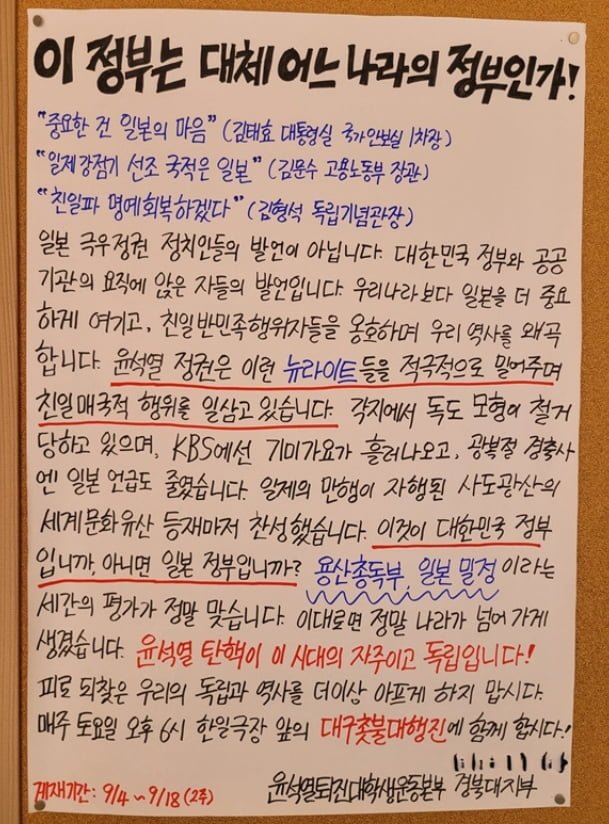 이 정부는 대체 어느 나라의 정부인가!
"중요한 건 일본의 마음" (김태효 대통령실 국가안보실 1차장)
"일제강점기 선조 국적은 일본" (김문수 고용노동부 장관)
"친일파 명예회복하겠다" (김형석 독립기념관장)
일본 극우정권 정치인들의 발언이 아닙니다. 대한민국 정부와 공공
기관의 요직에 앉은 자들의 발언입니다. 우리나라보다 일본을 더 중요
하게 여기고, 친일반민족행위자들을 옹호하며 우리 역사를 왜곡
합니다. 윤석열 정권은 이런 뉴라이트들을 적극적으로 밀어주며
친일매국적 행위를 일삼고 있습니다. 각지에서 독도 모형이 철거
당하고 있으며, KBS에선 기미가요가 흘러나오고, 광복절 경축사
엔 일본 언급도 줄였습니다. 일제의 만행이 자행된 사도광산의
세계문화유산 등재마저 찬성했습니다. 이것이 대한민국 정부
입니까, 아니면 일본 정부입니까? 용산총독부, 일본 밀정이라는
세간의 평가가 정말 맞습니다. 이대로면 정말 나라가 넘어가게
생겼습니다. 윤석열 탄핵이 이 시대의 자주이고 독립입니다!
피로 되찾은 우리의 독립과 역사를 더이상 아프게 하지 맙시다.
매주 토요일 오후 6시 한일극장 앞의 대구촛불대행진에 함께 합시다!
게재기간: 9/4 ~ 9/18 (2주)
윤석열퇴진대학생운동본부 경북대지부